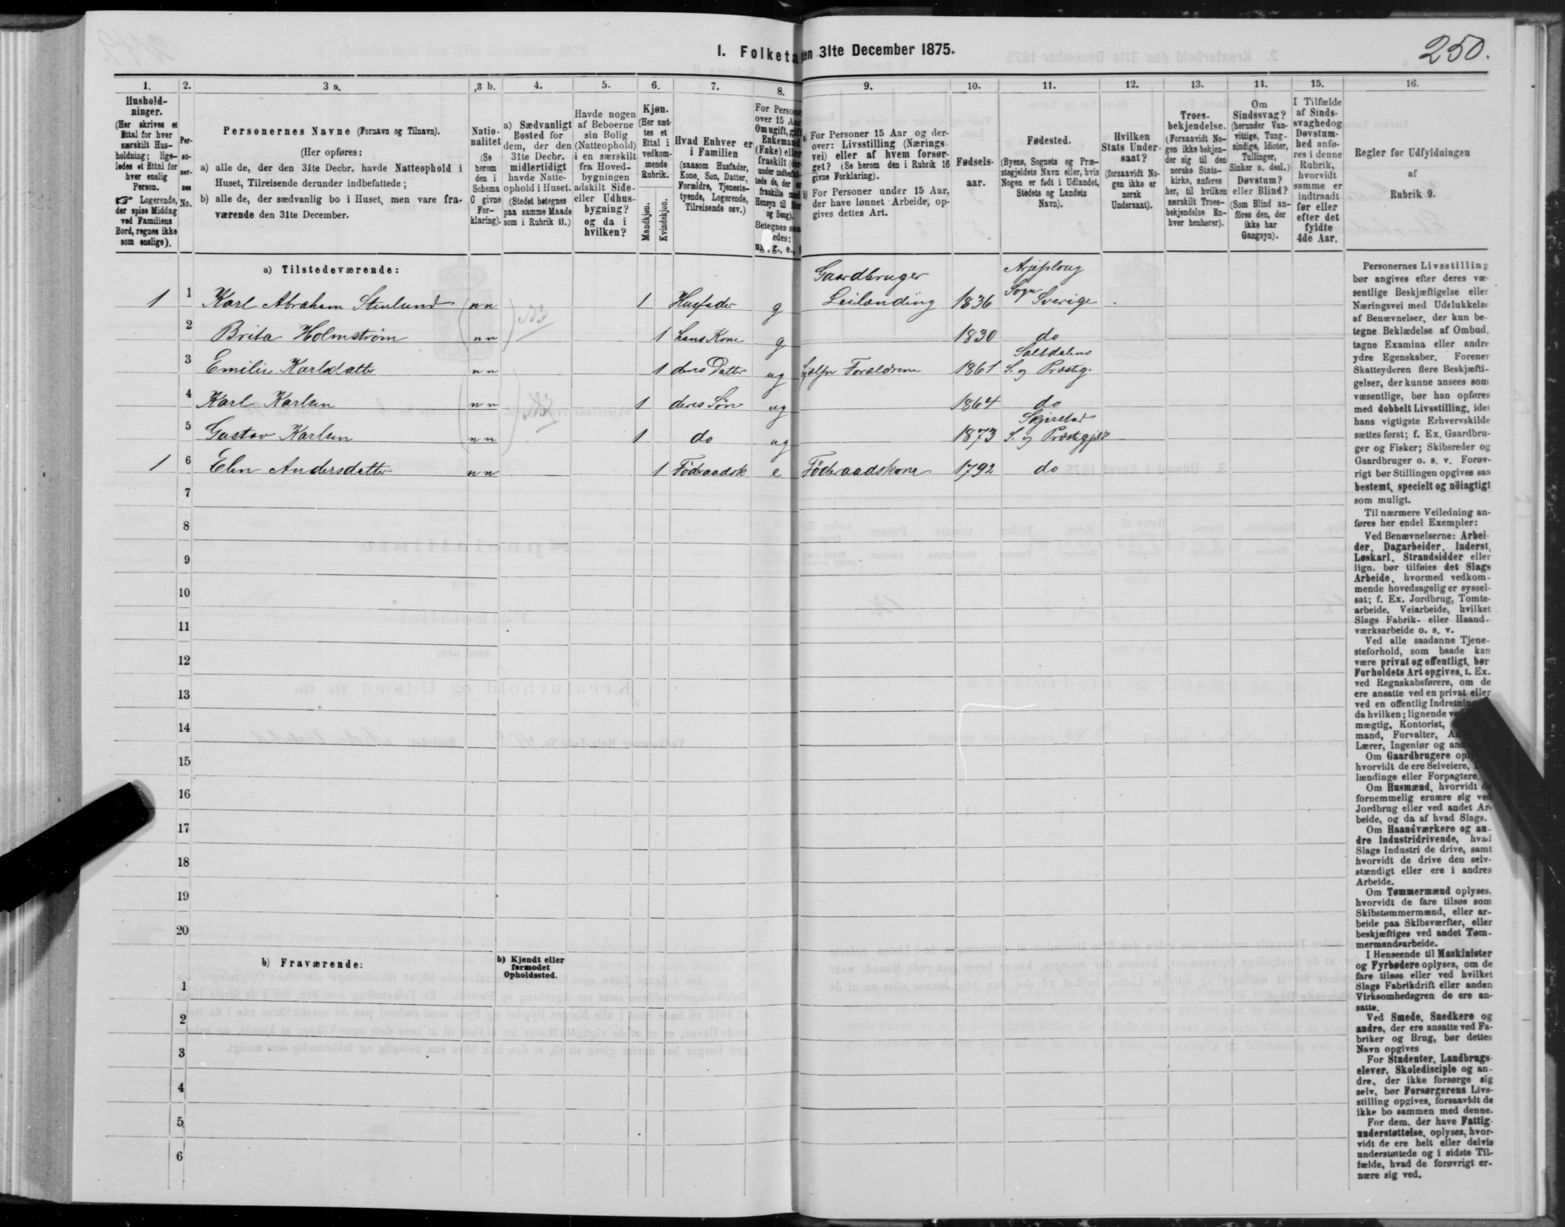 I. Folketælling den 31te December 1875.
250.
1. 2. 3 a. 3 b. 4. 5. 6. 7. 8. 9. 10. 11. 12. 13. 14. 15. 16.
Hushold-
ninger.
(Her skrives et
Ettal for hver
særskilt Hus-
holdning; lige-
ledes et Ettal for
hver enslig
Person.
☞ Logerende,
der spise Middag
ved Familiens
Bord, regnes ikke
som enslige).
Per-
so-
ner-
nes
No.
Personernes Navne (Fornavn og Tilnavn).
(Her opføres:
a) alle de, der den 31te Decbr. havde Natteophold i
Huset, Tilreisende derunder indbefattede;
b) alle de, der sædvanlig bo i Huset, men vare fra-
værende den 31te December.
Natio-
nalitet
(Se
herom
den i
Schema
C givne
For-
klaring).
a) Sædvanligt
Bosted for
dem, der den
31te Decbr.
midlertidigt
havde Natte-
ophold i Huset.
(Stedet betegnes
paa samme Maade
som i Rubrik 11.)
Havde nogen
af Beboerne
sin Bolig
(Natteophold)
i en særskilt
fra Hoved-
bygningen
adskilt Side-
eller Udhus-
bygning?
og da i
hvilken?
Kjøn.
(Her sæt-
tes et
Ettal i
vedkom-
mende
Rubrik.
Mandkjøn.
Kvindekjøn.
Hvad Enhver er
i Familien
(saasom Husfader,
Kone, Søn, Datter,
Forældre, Tjeneste-
tyende, Logerende,
Tilreisende osv.)
For Personer
over 15 Aar:
a) For Personer 15 Aar og der-
over: Livsstilling (Nærings-
vei) eller af hvem forsør-
get? (Se herom den i Rubrik 16
givne Forklaring).
b) For Personer under 15 Aar,
der have lønnet Arbeide, op-
gives dettes Art.
Fødsels-
aar.
Fødested.
(Byens, Sognets og Præ-
stegjeldets Navn eller, hvis
Nogen er født i Udlandet,
Stedets og Landets
Navn).
Hvilken
Stats Under-
saat?
(forsaavidt No-
gen ikke er
norsk
Undersaat).
Troes-
bekjendelse.
(Forsaavidt No-
gen ikke bekjen-
der sig til den
norske Stats-
kirke, anføres
her, til hvilken
særskilt Troes-
bekjendelse En-
hver henhører).
Om
Sindssvag?
(herunder Van-
vittige, Tung-
sindige, Idioter,
Tullinger,
Sinker o. desl.)
Døvstum?
eller Blind?
(Som Blind an-
føres den, der
ikke har
Gangsyn).
I Tilfælde
af Sinds-
svaghed og
Døvstum-
hed anfø-
res i denne
Rubrik,
hvorvidt
samme er
indtraadt
før eller
efter det
fyldte
4de Aar.
Regler for Udfyldningen
af
Rubrik 9.
a) Tilstedeværende:
1 1 Karl Abraham Stenlund n n 1 Husfader g Gaardbruger Leilænding 1836 Arjeploug Sogn Sverige
2 Brita Holmstrøm n n 1 hans Kone g 1830 do
3 Emilie Karlsdatter n n 1 deres Datter ug hjelper Forældrene 1861 Saltdalens S. og Præstg.
4 Karl Karlsen n n 1 deres Søn ug 1864 do
5 Gustav Karlsen n n 1 do ug 1873 Skjerstad S. og Præstegjeld
1 6 Elen Andersdatter n n 1 Föderaadsk e Föderaadskone 1792 do
7
8
9
10
11
12
13
14
15
16
17
18
19
20
b) Fraværende:
b) Kjendt eller
formodet
Opholdssted.
1
2
3
4
5
6
Personernes Livsstilling
bør angives efter deres væ-
sentlige Beskjæftigelse eller
Næringsvei med Udelukkelse
af Benævnelser, der kun be-
tegne Beklædelse af Ombud,
tagne Examina eller andre
ydre Egenskaber. Forener
Skatteyderen flere Beskjæfti-
gelser, der kunne ansees som
væsentlige, bør han opføres
med dobbelt Livsstilling, idet
hans vigtigste Erhvervskilde
sættes først; f. Ex. Gaardbru-
ger og Fisker; Skibsreder og
Gaardbruger o. s. v. Forøv-
rigt bør Stillingen opgives saa
bestemt, specielt og nöiagtigt
som muligt.
Til nærmere Veiledning an-
føres her endel Exempler:
Ved Benævnelserne: Arbei-
der, Dagarbeider, Inderst,
Løskarl, Strandsidder eller
lign. bør tilføies det Slags
Arbeide, hvormed vedkom-
mende hovedsagelig er syssel-
sat; f. Ex. Jordbrug, Tomte-
arbeide, Veiarbeide, hvilket
Slags Fabrik- eller Haand-
værksarbeide o. s. v.
Ved alle saadanne Tjene-
steforhold, som baade kan
være privat og offentligt, bør
Forholdets Art opgives, t. Ex.
ved Regnskabsførere, om de
ere ansatte ved en privat eller
ved en offentlig Indretning
da hvilken; lignende ved
mægtig, Kontorist,
mand, Forvalter,
Lærer, Ingeniør og
Om Gaardbrugere
hvorvidt de ere Selveiere,
lændinge eller Forpagtere.
Om Husmænd, hvorvidt de
fornemmelig ernære sig ved
Jordbrug eller ved andet Ar-
beide, og da af hvad Slags.
Om Haandværkere og an-
dre Industridrivende, hvad
Slags Industri de drive, samt
hvorvidt de drive den selv-
stændigt eller ere i andres
Arbeide.
Om Tømmermænd oplyses,
hvorvidt de fare tilsøs som
Skibstømmermænd, eller ar-
beide paa Skibsværfter, eller
beskjæftiges ved andet Tøm-
mermandsarbeide.
I Henseende til Maskinister
og Fyrbødere oplyses, om de
fare tilsøs eller ved hvilket
Slags Fabrikdrift eller anden
Virksomhedsgren de ere an-
satte.
Ved Smede, Snedkere og
andre, der ere ansatte ved Fa-
briker og Brug, bør dettes
Navn opgives
For Studenter, Landbrugs-
elever, Skoledisciple og an-
dre, der ikke forsørge sig
selv, bør Forsørgerens Livs-
stilling opgives, forsaavidt de
ikke bo sammen med denne.
For dem, der have Fattig-
understøttelse, oplyses, hvor-
vidt de ere helt eller delvis
understøttede og i sidste Til-
fælde, hvad de forøvrigt er-
nære sig ved.